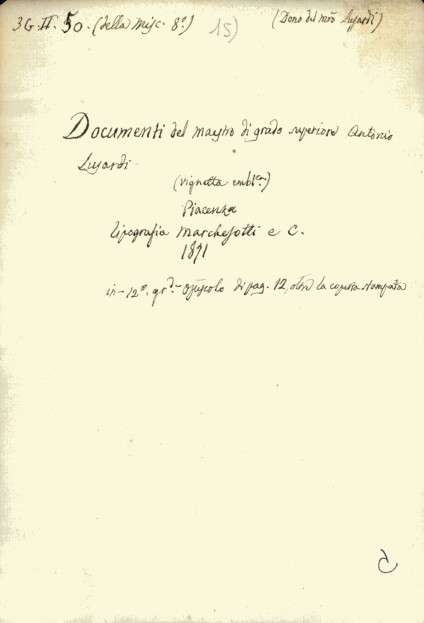 3 G. II. 50. (della Misc. 8ª) 15) (Dono del mro Lusardi)
Documenti del maestro di grado superiore Antonio
Lusardi
(vignetta emblca)
Piacenza
tipografia Marchesotti e C.
1871
in-12º. gr.de opuscolo di pag. 12, oltre la coperta stampata